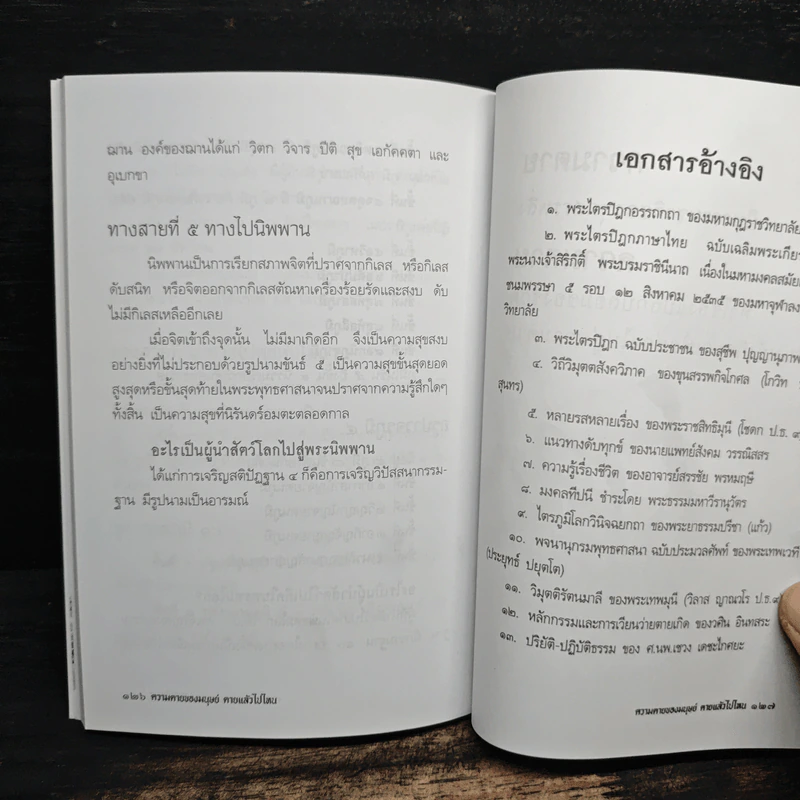 ฌาน องค์ของฌานได้แก่ วิตก วิจาร ปีติ สุข เอกัคคตา และ
อุเบกขา
ทางสายที่ ๕ ทางไปนิพพาน
นิพพานเป็นการเรียกสภาพจิตที่ปราศจากกิเลส หรือกิเลส
ดับสนิท หรือจิตออกจากกิเลสตัณหาเครื่องร้อยรัดและสงบ ดับ
ไม่มีกิเลสเหลืออีกเลย
เมื่อจิตเข้าถึงจุดนั้น ไม่มีมาเกิดอีก จึงเป็นความสุขสงบ
อย่างยิ่งที่ไม่ประกอบด้วยรูปนามขันธ์ ๕ เป็นความสุขขั้นสุดยอด
สูงสุดหรือขั้นสุดท้ายในพระพุทธศาสนาจนปราศจากความรู้สึกใดๆ
ทั้งสิ้น เป็นความสุขที่นิรันดร์อมตะตลอดกาล
อะไรเป็นผู้นำสัตว์โลกไปสู่พระนิพพาน
ได้แก่การเจริญสติปัฏฐาน ๔ ก็คือการเจริญวิปัสสนากรรม-
ฐาน มีรูปนามเป็นอารมณ์
๑๒๖ ความตายของมนุษย์ ตายแล้วไปไหน
เอกสารอ้างอิง
๑. พระไตรปิฎกอรรถกถา ของมหามกุฏราชวิทยาลัย
๒. พระไตรปิฎกภาษาไทย ฉบับเฉลิมพระเกียร
พระนางเจ้าสิริกิติ์ พระบรมราชินีนาถ เนื่องในมหามงคลสมัย
ชนมพรรษา ๕ รอบ ๑๒ สิงหาคม ๒๕๓๕ ของมหาจุฬาลง
วิทยาลัย
๓. พระไตรปิฎก ฉบับประชาชน ของสุชีพ ปุญญานุภาพ
๔. วิถีวิมุตตสังควิภาค ของขุนสรรพกิจโกศล (โกวิท
สุนทร)
๕. หลายรสหลายเรื่อง ของพระราชสิทธิมุนี (โชดก ป.ธ. ๙
๖. แนวทางดับทุกข์ ของนายแพทย์สังคม วรรณิสสร
๗. ความรู้เรื่องชีวิต ของอาจารย์สรรชัย พรหมฤษี
๘. มงคลทีปนี ชำระโดย พระธรรมมหาวีรานุวัตร
๙. ไตรภูมิโลกวินิจฉยกถา ของพระยาธรรมปรีชา (แก้ว)
๑๐. พจนานุกรมพุทธศาสนา ฉบับประมวลศัพท์ ของพระเทพเวที
(ประยุทธ์ ปยุตโต)
๑๑. วิมุตติรัตนมาลี ของพระเทพมุนี (วิลาส ญาณวโร ป.ธ.๙
๑๒. หลักกรรมและการเวียนว่ายตายเกิด ของวศิน อินทสระ
๑๓. ปริยัติ-ปฏิบัติธรรม ของ ศ.นพ.เชวง เดชะไกศยะ
ความตายของมนุษย์ ตายแล้วไปไหน ๑๒๗